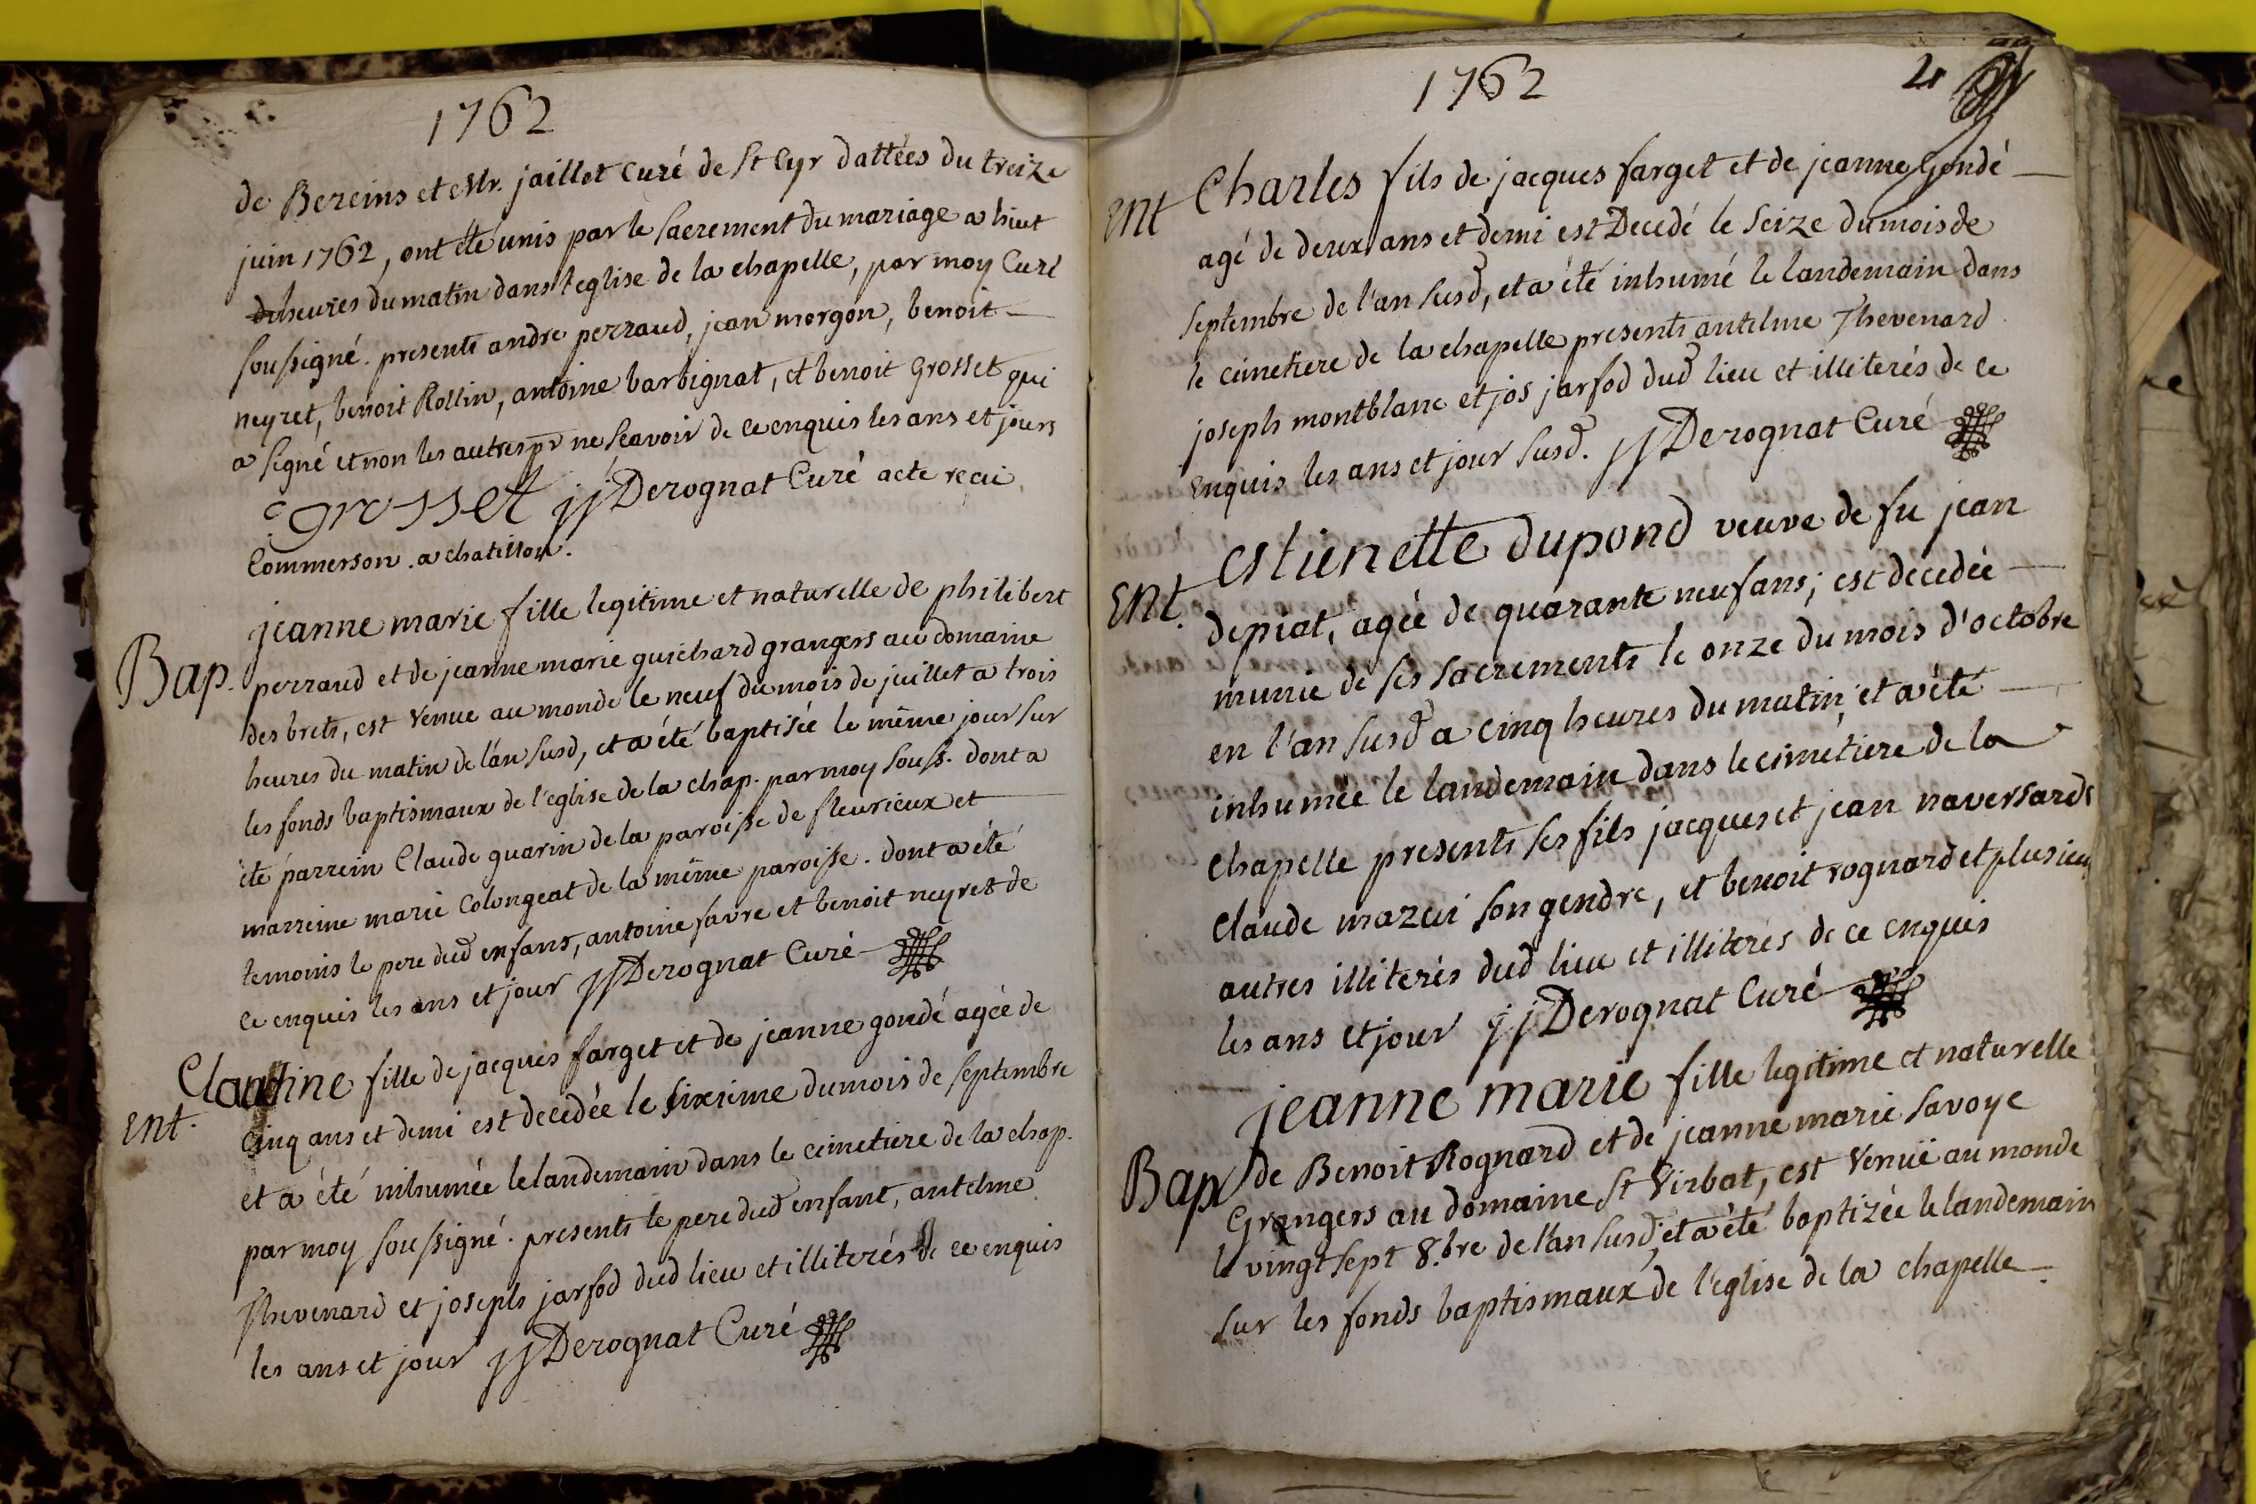 1762
de Bereins et Mr. jaillot Curé de St Cyr dattées du treize
juin 1762, ont été unis par le sacrement du mariage a huit
heures du matin dans l'eglise de la chapelle, par moy Curé
soussigné. presents andre perraud, jean morgon, benoit
neyret, benoit Rollin, antoine barbignat, et benoit Grosset qui
a signé et non les autres pr ne scavoir de ce enquis les ans et jours
grosset jj Derognat Curé acte recu
Commerson. a chatillon.
Bap.
jeanne marie fille legitime et naturelle de philibert
perraud et de jeanne marie guichard grangers au domaine
des brets, est venue au monde le neuf du mois de juillet a trois
heures du matin de l'an susd, et a été baptisée le même jour sur
les fonds baptismaux de l'eglise de la chap. par moy souss. dont a
été parrein Claude guarin de la paroisse de fleurieux et
marreine marie Colongeat de la même paroisse. dont a été
temoins le pere dud enfant, antoine favre et benoit neyret de
ce enquis les ans et jour jj Derognat Curé
Ent.
Claudine fille de jacques farget et de jeanne gondé agée de
cinq ans et demi est decedée le sixieme du mois de septembre
et a été inhumée le landemain dans le cimetiere de la chap.
par moy soussigné. presents le pere dud enfant, antelme
Thevenard et joseph jarfod dud lieu et illiterés de ce enquis
les ans et jour jj Derognat Curé
1762
Ent
Charles fils de jacques farget et de jeanne Gondé
agé de deux ans et demi est Decedé le seize du mois de
septembre de l'an susd, et a été inhumé le landemain dans
le cimetiere de la chapelle presents antelme Thevenard
joseph montblanc et jos jarfod dud lieu et illiterés de ce
enquis les ans et jour susd. jj Derognat Curé
Ent.
estienette dupond veuve de fu jean
depiat, agée de quarante neuf ans, est decedée
munie de ses sacrements le onze du mois d'octobre
en l'an susd a cinq heures du matin, et a été
inhumée le landemain dans le cimetiere de la
chapelle presents ses fils jacques et jean naversards
Claude mazui son gendre, et benoit rognard et plusieurs
autres illiterés dud lieu et illiterés de ce enquis
les ans et jour jj Derognat Curé
Bap
jeanne marie fille legitime et naturelle
de Benoit Rognard et de jeanne marie savoye
Grangers au domaine St Virbat, est venuë au monde
le vingt sept 8.bre de l'an susd, et a été baptizée le landemain
sur les fonds baptismaux de l'eglise de la chapelle